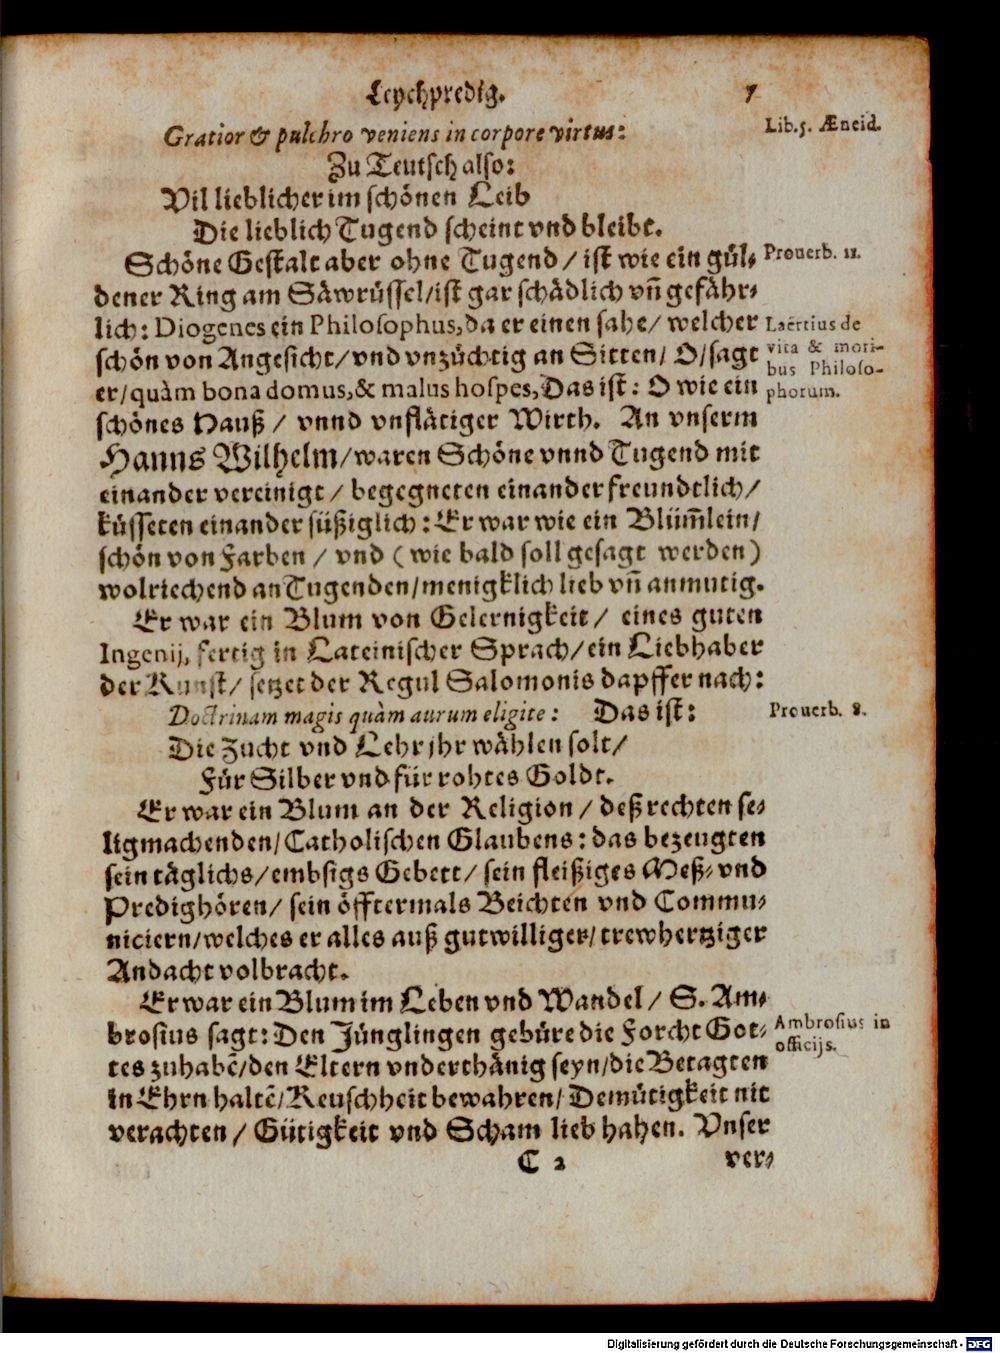 Leychpredig. 7
Gratior & pulchro veniens in corpore virtus: Lib. 5. Æneid.
Zu Teutsch also:
Vil lieblicher im schönen Leib
Die lieblich Tugend scheint vnd bleibt.
Schöne Gestalt aber ohne Tugend / ist wie ein gül- Prouerb. 11.
dener Ring am Säwrüssel / ist gar schädlich vñ gefähr-
lich: Diogenes ein Philosophus, da er einen sahe / welcher Laërtius de
schön von Angesicht / vnd vnzüchtig an Sitten / O / sagt vita & mori-
bus Philoso-
er / quàm bona domus, & malus hospes, Das ist: O wie ein phorum.
schönes Hauß / vnnd vnflätiger Wirth. An vnserm
Hanns Wilhelm / waren Schöne vnnd Tugend mit
einander vereinigt / begegneten einander freundtlich /
küsseten einander süßiglich: Er war wie ein Blüm̃lein /
schön von Farben / vnd (wie bald soll gesagt werden)
wolriechend an Tugenden / menigklich lieb vñ anmutig.
Er war ein Blum von Gelernigkeit / eines guten
Ingenij, fertig in Lateinischer Sprach / ein Liebhaber
der Kunst / setzet der Regul Salomonis dapffer nach:
Doctrinam magis quàm aurum eligite: Das ist: Prouerb. 8.
Die Zucht vnd Lehr jhr wählen solt /
Für Silber vnd für rohtes Goldt.
Er war ein Blum an der Religion / deß rechten se-
ligmachenden / Catholischen Glaubens: das bezeugten
sein täglichs / embsigs Gebett / sein fleißiges Meß- vnd
Predighören / sein öfftermals Beichten vnd Commu-
niciern / welches er alles auß gutwilliger / trewhertziger
Andacht volbracht.
Er war ein Blum im Leben vnd Wandel / S. Am-
brosius sagt: Den Jünglingen gebüre die Forcht Got- Ambrosius in
officijs.
tes zuhabẽ / den Eltern vnderthänig seyn / die Betagten
in Ehrn haltẽ / Keuschheit bewahren / Demütigkeit nit
verachten / Gütigkeit vnd Scham lieb hahen. Vnser
C 2 ver-
Digitalisierung gefördert durch die Deutsche Forschungsgemeinschaft - DFG